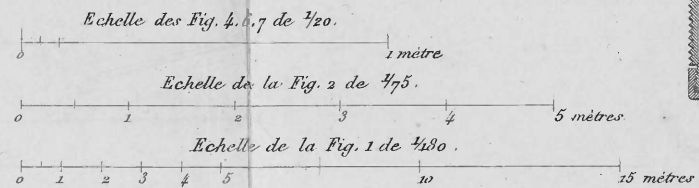 Echelle des Fig. 4.6.7 de 1/20.
0 1 mètre
Echelle de la Fig. 2 de 1/75.
0 1 2 3 4 5 mètres
Echelle de la Fig. 1 de 1/180.
0 1 2 3 4 5 10 15 mètres